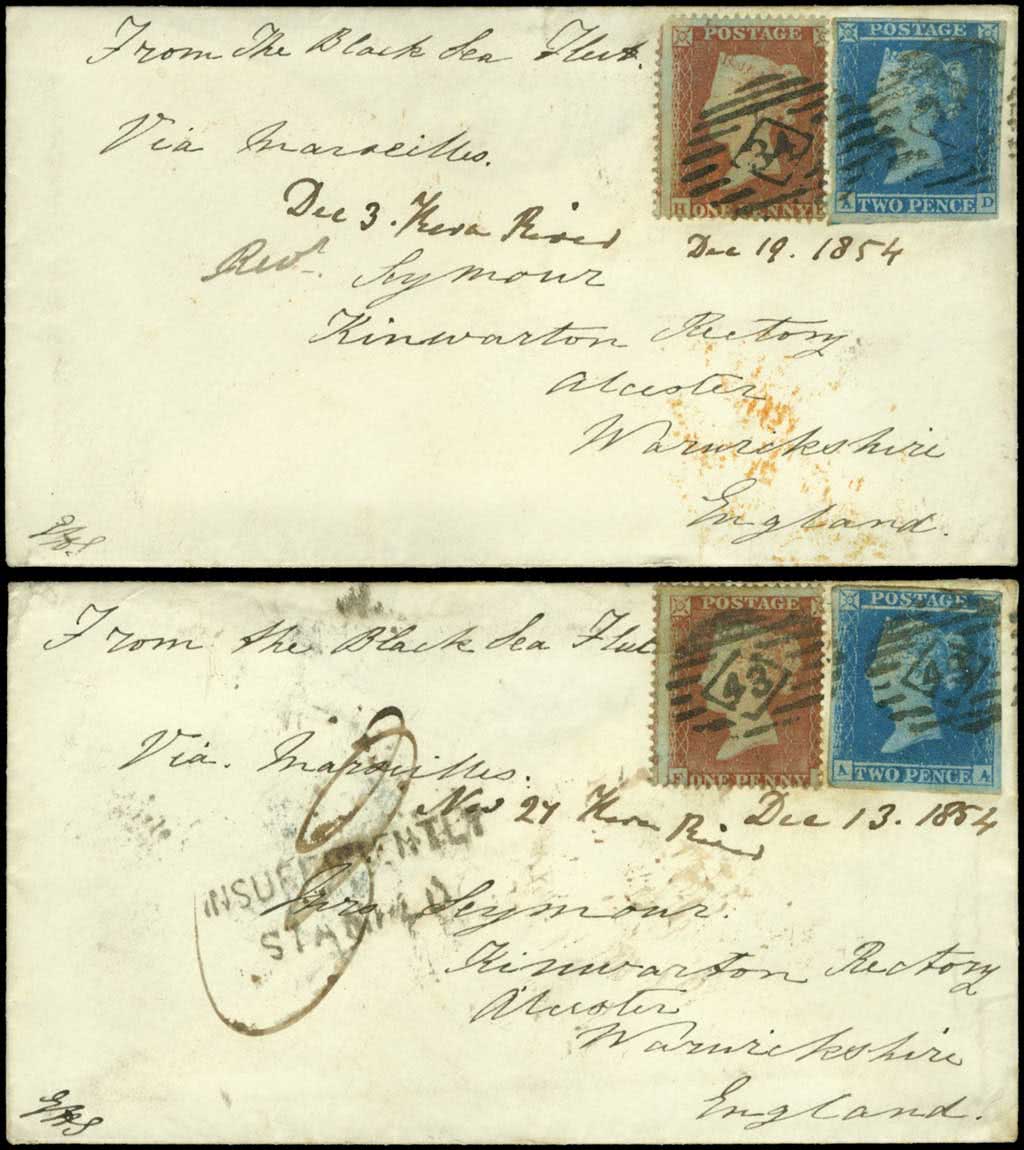 From The Black Sea Fleet.
POSTAGE
POSTAGE
34
H ONE PENNY E
A TWO PENCE D
Via Marseilles.
Dec 3. River
Dec 19. 1854
Revd.
Seymour
Kinwarton Rectory
Alcester
Warwickshire
England.
From the Black Sea Fleet
POSTAGE
POSTAGE
43
43
F ONE PENNY
A TWO PENCE A
Via. Marseilles.
Nov 27 River
Dec 13. 1854
INSUFFICIENTLY
STAMPED
Mrs Seymour.
Kinwarton Rectory
Alcester
Warwickshire
England.